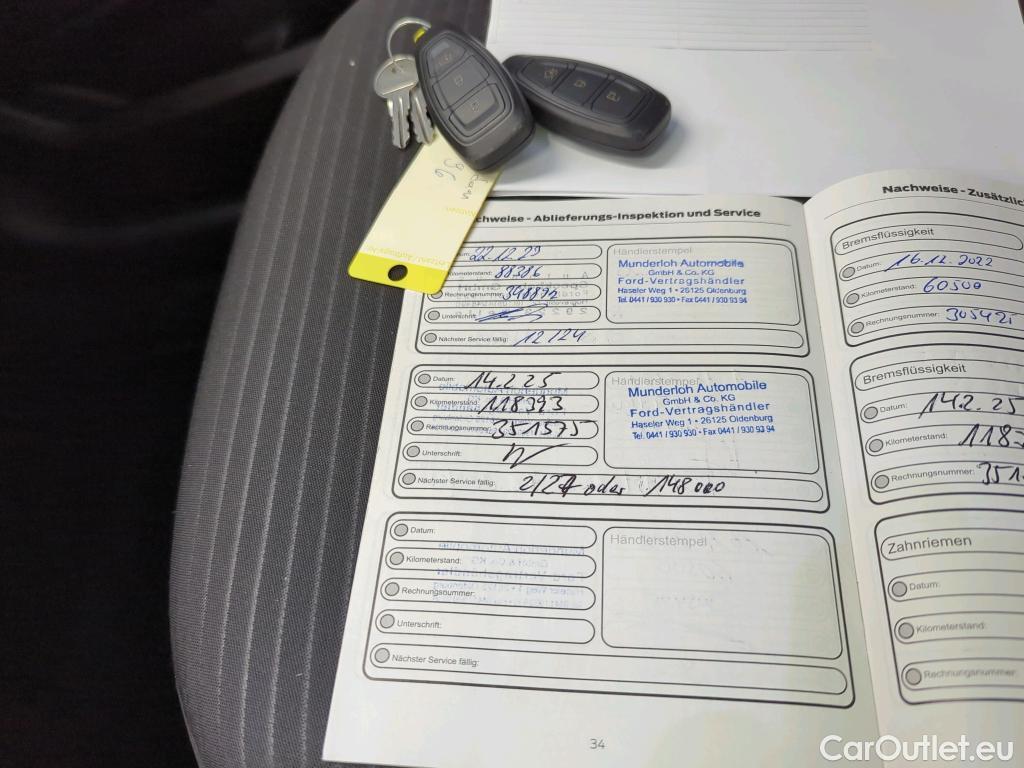 Nachweise - Ablieferungs-Inspektion und Service
22.12.23
Kilometerstand: 88386
Rechnungsnummer: 348892
Unterschrift:
Nächster Service fällig: 12/24
Händlerstempel
Munderloh Automobile
GmbH & Co. KG
Ford-Vertragshändler
Haseler Weg 1 • 26125 Oldenburg
Tel. 0441 / 930 930 • Fax 0441 / 930 93 94
Datum: 14.2.25
Kilometerstand: 118393
Rechnungsnummer: 351575
Unterschrift:
Nächster Service fällig: 2/27 oder 148000
Händlerstempel
Munderloh Automobile
GmbH & Co. KG
Ford-Vertragshändler
Haseler Weg 1 • 26125 Oldenburg
Tel. 0441 / 930 930 • Fax 0441 / 930 93 94
Datum:
Kilometerstand:
Rechnungsnummer:
Unterschrift:
Nächster Service fällig:
Händlerstempel
34
Nachweise - Zusätzlic
Bremsflüssigkeit
Datum: 16.12.2022
Kilometerstand: 60500
Rechnungsnummer: 305421
Bremsflüssigkeit
Datum: 14.2.25
Kilometerstand: 118
Rechnungsnummer: 351
Zahnriemen
Datum:
Kilometerstand:
Rechnungsnummer:
CarOutlet.eu